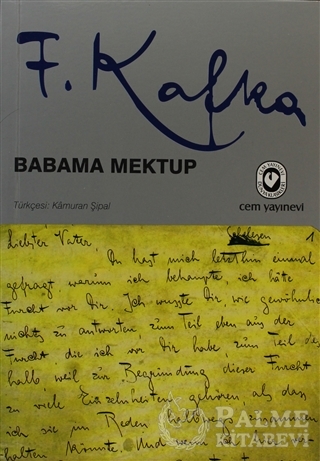 F. Kafka
BABAMA MEKTUP
Türkçesi: Kâmuran Şipal
CEM YAYINEVİ
cem yayınevi
Schelesen
1
Liebster Vater,
Du hast mich letzthin einmal
gefragt warum ich behaupte, ich hätte
Furcht vor Dir. Ich wusste Dir, wie gewöhnlich
nichts zu antworten zum Teil eben aus der
Furcht die ich vor Dir habe zum Teil des
halb weil zur Begründung dieser Furcht
zu viele Einzelnheiten gehören, als dass
ich sie im Reden halbwegs zusammen
halten könnte. Und wenn ich
PALME
KİTABEVİ